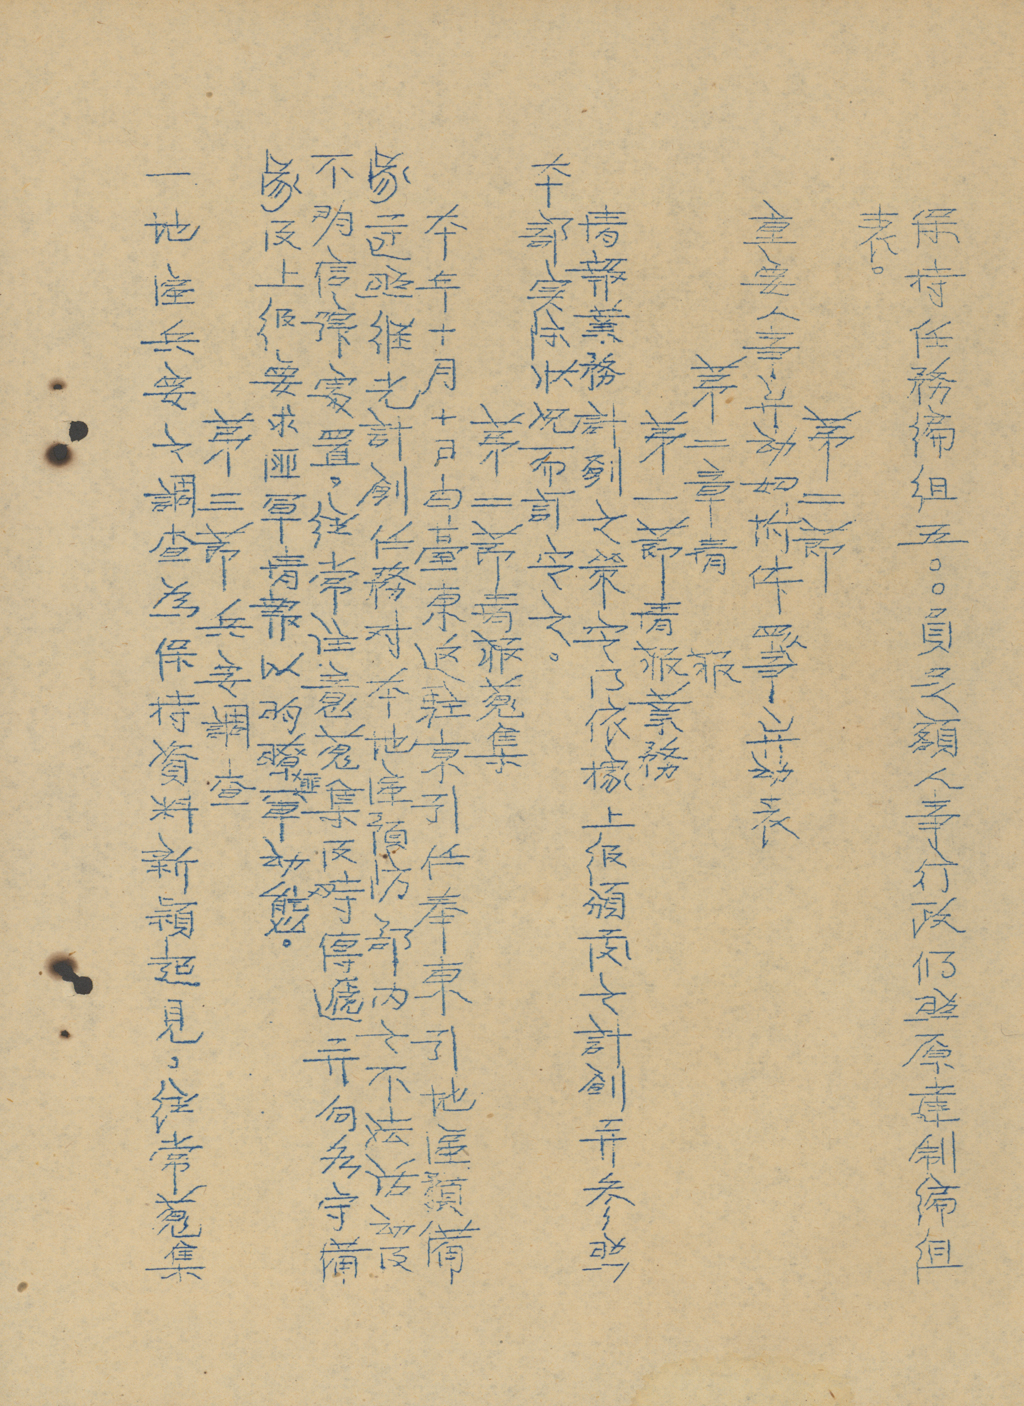 保持任務編組五。。員之額人事行政仍照原建制編組
表。
第二節
重要人事異動如附件四人事異動表
第二章 情報
第一節 情報業務
情報業務計劃之策定乃依據上級頒佈之計劃并參照
本部实际狀況而訂定之。
第二節 情報蒐集
本年十月十日由臺東返駐京引任奉東引地區預備
隊並照維光計劃任務对本地區預防部內之不法活動及
不明信號處置。經常注意蒐集及時傳遞并向各守備
隊及上级要求匪軍情報以明瞭匪軍动態。
第三節 兵要調查
一地區兵要之調查為保持資料新穎起見。經常蒐集